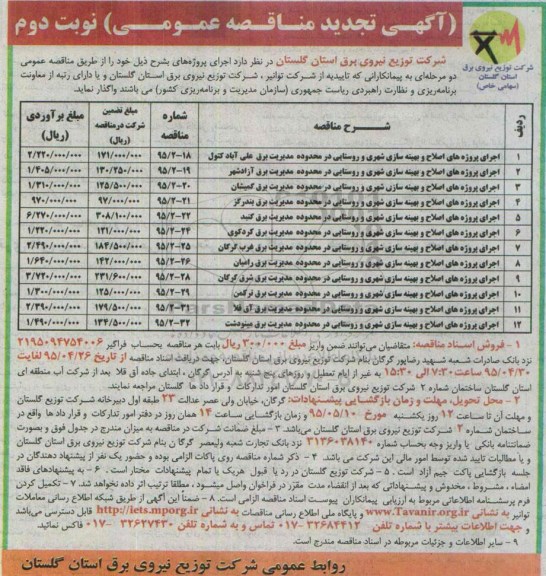 (آگهی تجدید مناقصه عمومی) نوبت دوم
شرکت توزیع نیروی برق
استان گلستان
(سهامی خاص)
شرکت توزیع نیروی برق استان گلستان در نظر دارد اجرای پروژه‌های بشرح ذیل خود را از طریق مناقصه عمومی
دو مرحله‌ای به پیمانکارانی که تاییدیه از شرکت توانیر ، شرکت توزیع نیروی برق استان گلستان و یا دارای رتبه از معاونت
برنامه‌ریزی و نظارت راهبردی ریاست جمهوری (سازمان مدیریت و برنامه‌ریزی کشور) می باشند واگذار نماید.
ردیف شرح مناقصه شماره مناقصه مبلغ تضمین شرکت درمناقصه (ریال) مبلغ برآوردی (ریال)
۱ اجرای پروژه های اصلاح و بهینه سازی شهری و روستایی در محدوده مدیریت برق علی آباد کتول ۹۵/۲-۱۸ ۱۷۱/۰۰۰/۰۰۰ ۲/۲۲۰/۰۰۰/۰۰۰
۲ اجرای پروژه های اصلاح و بهینه سازی شهری و روستایی در محدوده مدیریت برق آزادشهر ۹۵/۲-۱۹ ۱۳۰/۲۵۰/۰۰۰ ۱/۴۰۵/۰۰۰/۰۰۰
۳ اجرای پروژه های اصلاح و بهینه سازی شهری و روستایی در محدوده مدیریت برق گمیشان ۹۵/۲-۲۰ ۱۲۵/۵۰۰/۰۰۰ ۱/۳۱۰/۰۰۰/۰۰۰
۴ اجرای پروژه های اصلاح و بهینه سازی شهری و روستایی در محدوده مدیریت برق بندرگز ۹۵/۲-۲۱ ۹۷/۰۰۰/۰۰۰ ۹۷۰/۰۰۰/۰۰۰
۵ اجرای پروژه های اصلاح و بهینه سازی شهری و روستایی در محدوده مدیریت برق گنبد ۹۵/۲-۲۲ ۳۰۸/۱۰۰/۰۰۰ ۶/۲۷۰/۰۰۰/۰۰۰
۶ اجرای پروژه های اصلاح و بهینه سازی شهری و روستایی در محدوده مدیریت برق کردکوی ۹۵/۲-۲۴ ۱۲۱/۰۰۰/۰۰۰ ۱/۲۲۰/۰۰۰/۰۰۰
۷ اجرای پروژه های اصلاح و بهینه سازی شهری و روستایی در محدوده مدیریت برق غرب گرگان ۹۵/۲-۲۵ ۱۸۴/۵۰۰/۰۰۰ ۲/۴۹۰/۰۰۰/۰۰۰
۸ اجرای پروژه های اصلاح و بهینه سازی شهری و روستایی در محدوده مدیریت برق رامیان ۹۵/۲-۲۶ ۱۴۲/۰۰۰/۰۰۰ ۱/۶۴۰/۰۰۰/۰۰۰
۹ اجرای پروژه های اصلاح و بهینه سازی شهری و روستایی در محدوده مدیریت برق شرق گرگان ۹۵/۲-۲۸ ۲۳۱/۶۰۰/۰۰۰ ۳/۷۲۰/۰۰۰/۰۰۰
۱۰ اجرای پروژه های اصلاح و بهینه سازی شهری و روستایی در محدوده مدیریت برق ترکمن ۹۵/۲-۲۹ ۱۲۵/۰۰۰/۰۰۰ ۱/۳۰۰/۰۰۰/۰۰۰
۱۱ اجرای پروژه های اصلاح و بهینه سازی شهری و روستایی در محدوده مدیریت برق آق قلا ۹۵/۲-۳۱ ۱۷۹/۵۰۰/۰۰۰ ۲/۳۹۰/۰۰۰/۰۰۰
۱۲ اجرای پروژه های اصلاح و بهینه سازی شهری و روستایی در محدوده مدیریت برق مینودشت ۹۵/۲-۳۲ ۱۳۴/۵۰۰/۰۰۰ ۱/۴۹۰/۰۰۰/۰۰۰
۱ - فروش اسناد مناقصه: متقاضیان می‌توانند ضمن واریز مبلغ ۳۰۰/۰۰۰ ریال بابت هر مناقصه بحساب فراگیر ۲۱۹۵۰۹۴۷۵۴۰۰۶
نزد بانک صادرات شعبه شهید رضاپور گرگان بنام شرکت توزیع نیروی برق استان گلستان، جهت دریافت اسناد مناقصه از تاریخ ۹۵/۰۴/۲۶ لغایت
۹۵/۰۴/۳۰ ساعت ۷:۳۰ الی ۱۵:۳۰ به غیر از ایام تعطیل و روزهای پنج شنبه به آدرس گرگان ، ابتدای جاده آق قلا بعد از شرکت آب منطقه ای
استان گلستان ساختمان شماره ۲ شرکت توزیع نیروی برق استان گلستان امور تدارکات و قرار داد ها گلستان مراجعه نمایند.
۲ - محل تحویل، مهلت و زمان بازگشایی پیشنهادات: گرگان، خیابان ولی عصر عدالت ۲۳ طبقه اول دبیرخانه شرکت توزیع گلستان
و مهلت آن تا ساعت ۱۲ روز یکشنبه مورخ ۹۵/۰۵/۱۰ و زمان بازگشایی ساعت ۱۴ همان روز در دفتر امور تدارکات و قرار داد ها واقع در
ساختمان شماره ۲ شرکت توزیع نیروی برق استان گلستان می‌باشد. ۳ - مبلغ ضمانت شرکت در مناقصه به میزان مندرج در جدول فوق و بصورت
ضمانتنامه بانکی یا واریز وجه بحساب شماره ۳۱۳۶۰۳۸۱۴۰ نزد بانک تجارت شعبه ولیعصر گرگان بنام شرکت توزیع نیروی برق استان گلستان
و یا مطالبات تایید شده توسط امور مالی این شرکت می باشد. ۴ - ذکر شماره مناقصه روی پاکات الزامی بوده و حضور یک نفر از پیشنهاد دهندگان در
جلسه بازگشایی پاکت جیم آزاد است . ۵ - شرکت توزیع گلستان در رد یا قبول هریک یا تمام پیشنهادات مختار است . ۶ - به پیشنهادهای فاقد
امضاء ، مشروط ، مخدوش و پیشنهاداتی که بعد از انقضاء مدت مقرر در فراخوان واصل میشود ، مطلقا ترتیب اثر داده نخواهد شد. ۷ - تکمیل کردن
فرم پرسشنامه اطلاعاتی مربوط به ارزیابی پیمانکاران پیوست اسناد مناقصه الزامی است. ۸ - ضمناً این آگهی از طریق شبکه اطلاع رسانی معاملات
توانیر به نشانی www.Tavanir.org.ir و پایگاه ملی اطلاع رسانی مناقصات به نشانی http://iets.mporg.ir قابل دسترسی می‌باشد
و جهت اطلاعات بیشتر با شماره تلفن ۳۲۶۸۴۴۱۲ -۰۱۷ تماس و به شماره تلفن ۳۲۶۲۷۴۳۰ -۰۱۷ فاکس نمائید.
۹ - سایر اطلاعات و جزئیات مربوطه در اسناد مناقصه مندرج است.
روابط عمومی شرکت توزیع نیروی برق استان گلستان